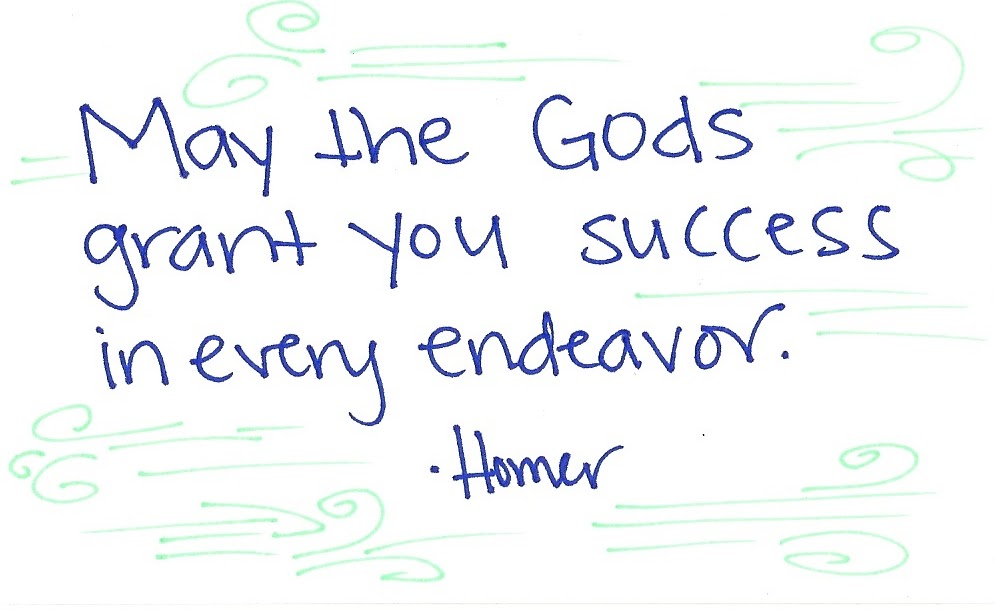 May the Gods
grant you success
in every endeavor.
·Homer